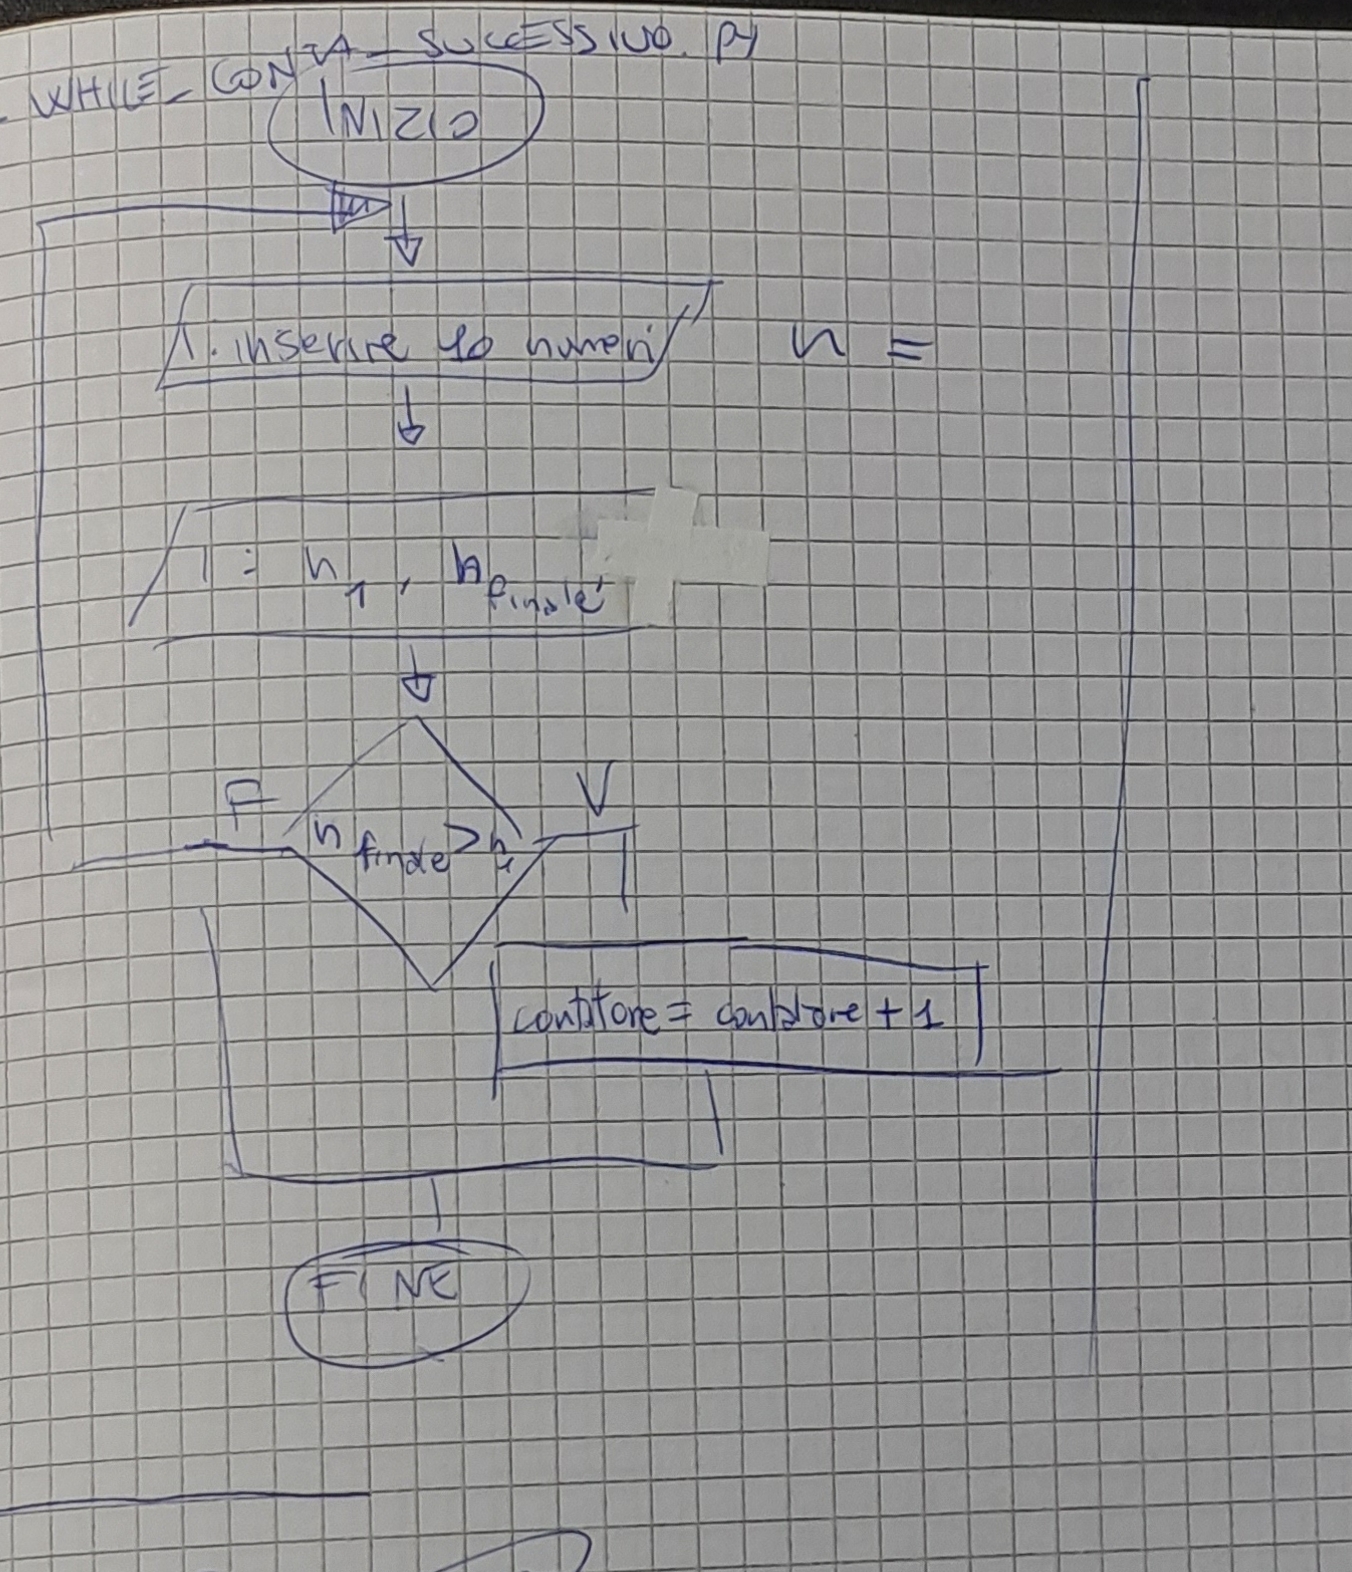 WHILE_CONTA_SUCCESSIVO.py
INIZIO
1. inserire 10 numeri
n =
I: n1, nfinale
F
V
nfinale > n1
contatore = contatore + 1
FINE